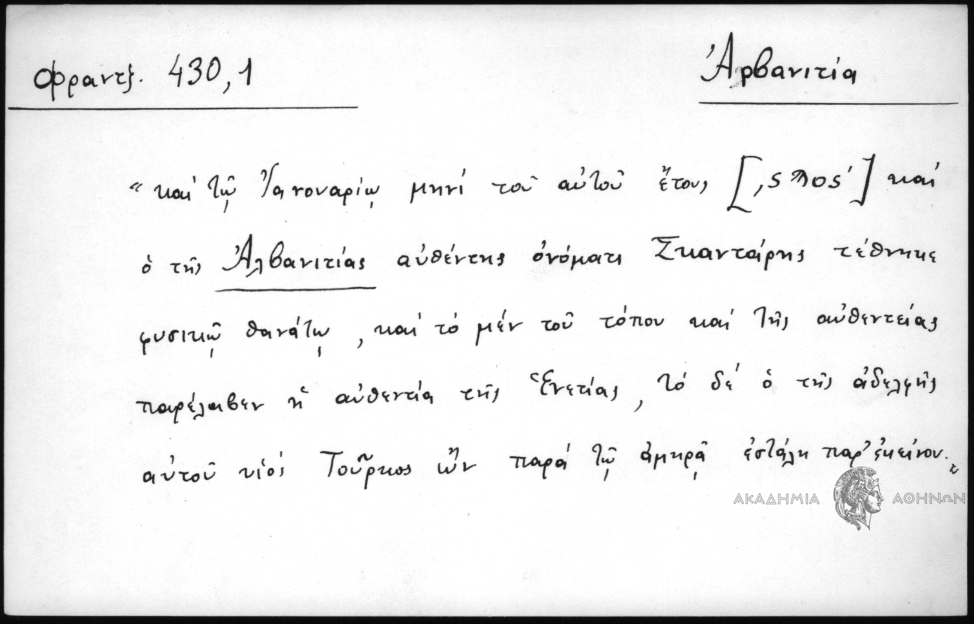 Φραντζ. 430,1
Ἀρβανιτία
“ καὶ τῷ Ἰαννουαρίῳ μηνὶ τοῦ αὐτοῦ ἔτους [͵ϛϠος´] καὶ
ὁ τῆς Ἀλβανιτίας αὐθέντης ὀνόματι Σκαντάρης τέθνηκε
φυσικῷ θανάτῳ, καὶ τὸ μὲν τοῦ τόπου καὶ τῆς αὐθεντείας
παρέλαβεν ἡ αὐθεντία τῆς Ἑνετίας, τὸ δὲ ὁ τῆς ἀδελφῆς
αὐτοῦ υἱὸς Τοῦρκος ὢν παρὰ τῷ ἀμηρᾷ ἐστάλη παρ’ ἐκείνου. ”
ΑΚΑΔΗΜΙΑ ΑΘΗΝΩΝ